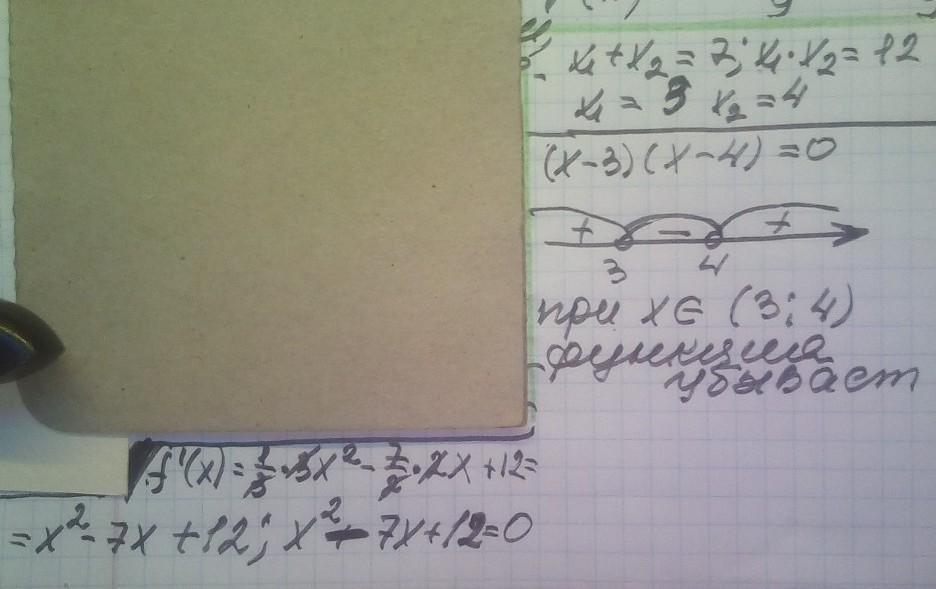 x₁ + x₂ = 7; x₁ · x₂ = 12
x₁ = 3 x₂ = 4
(x-3)(x-4) = 0
+ - +
3 4
при x ∈ (3; 4)
функция
убывает
f'(x) = 1/3 · 3x² - 7/2 · 2x + 12 =
= x² - 7x + 12; x² - 7x + 12 = 0